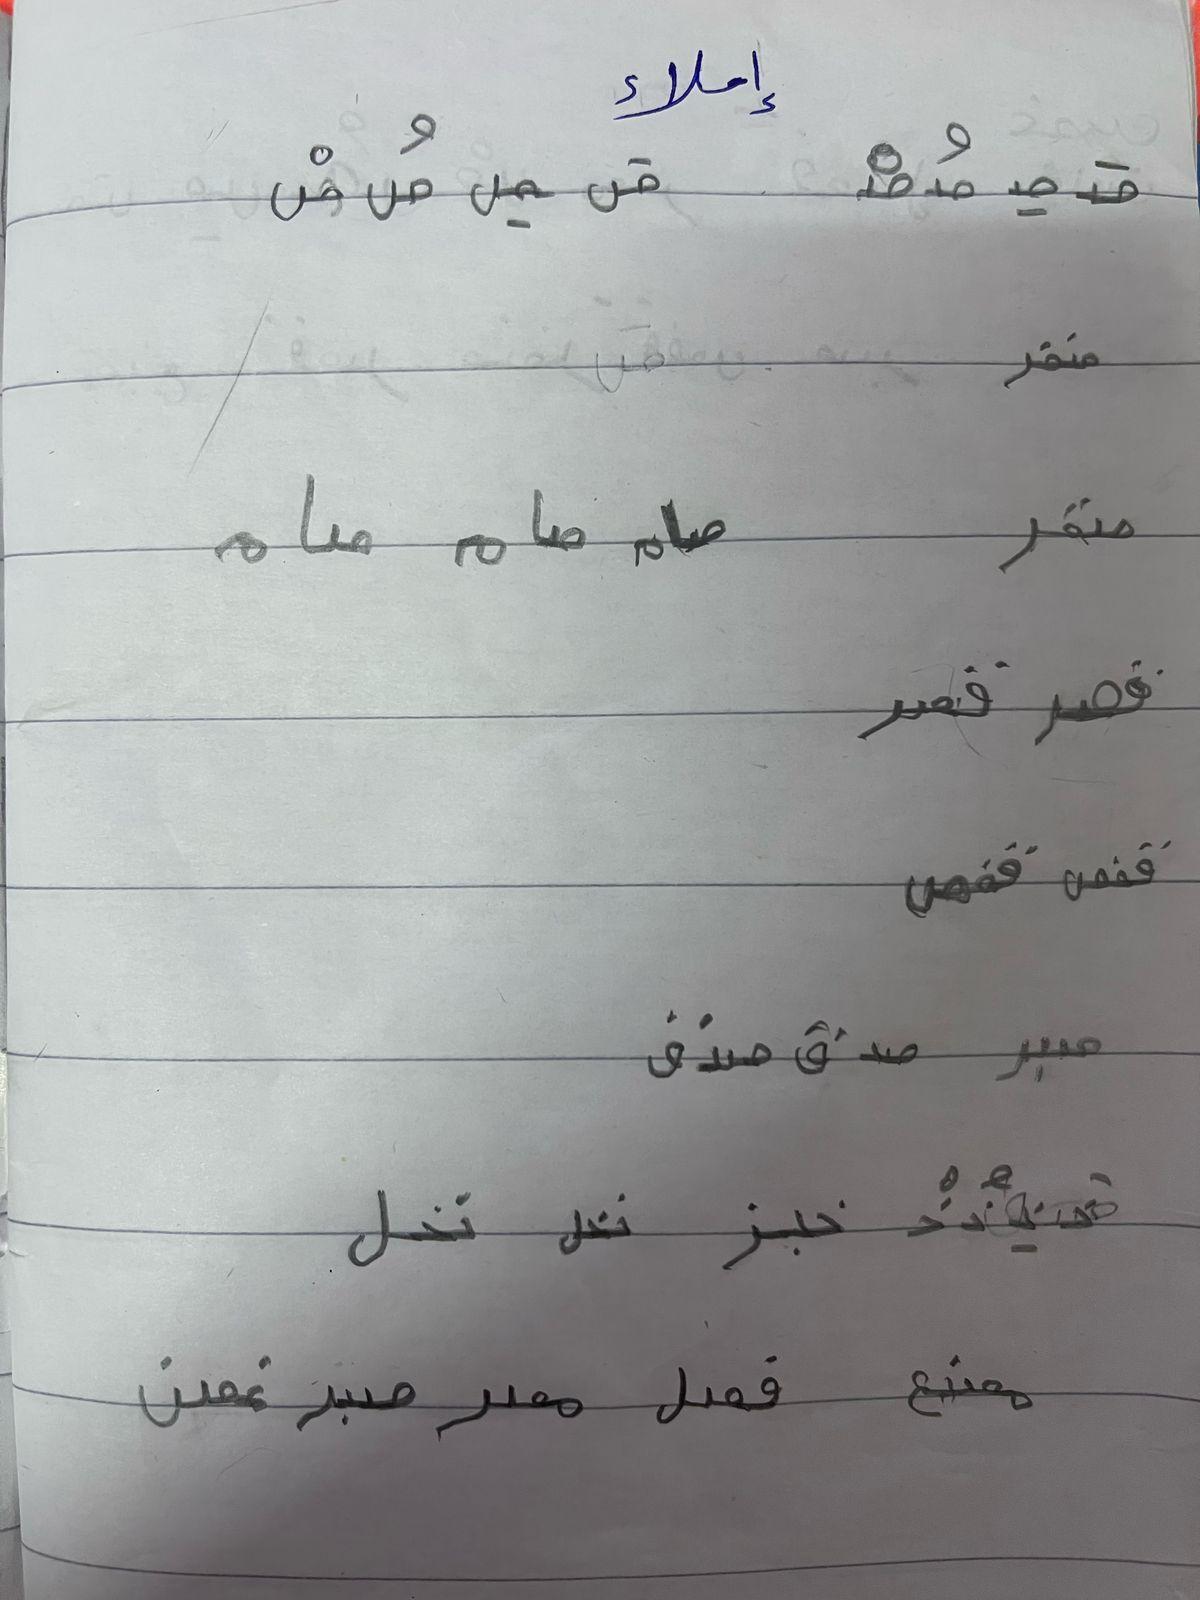 إملاء
صَـ صِـ صُـ صْـ صَ صِ صُ صْ
صقر
صقر صام صام صام
قصر قصر
قفص قفص
صبر صدق صدق
خبز نخل نخل
مصنع فصل مصر صبر غصن